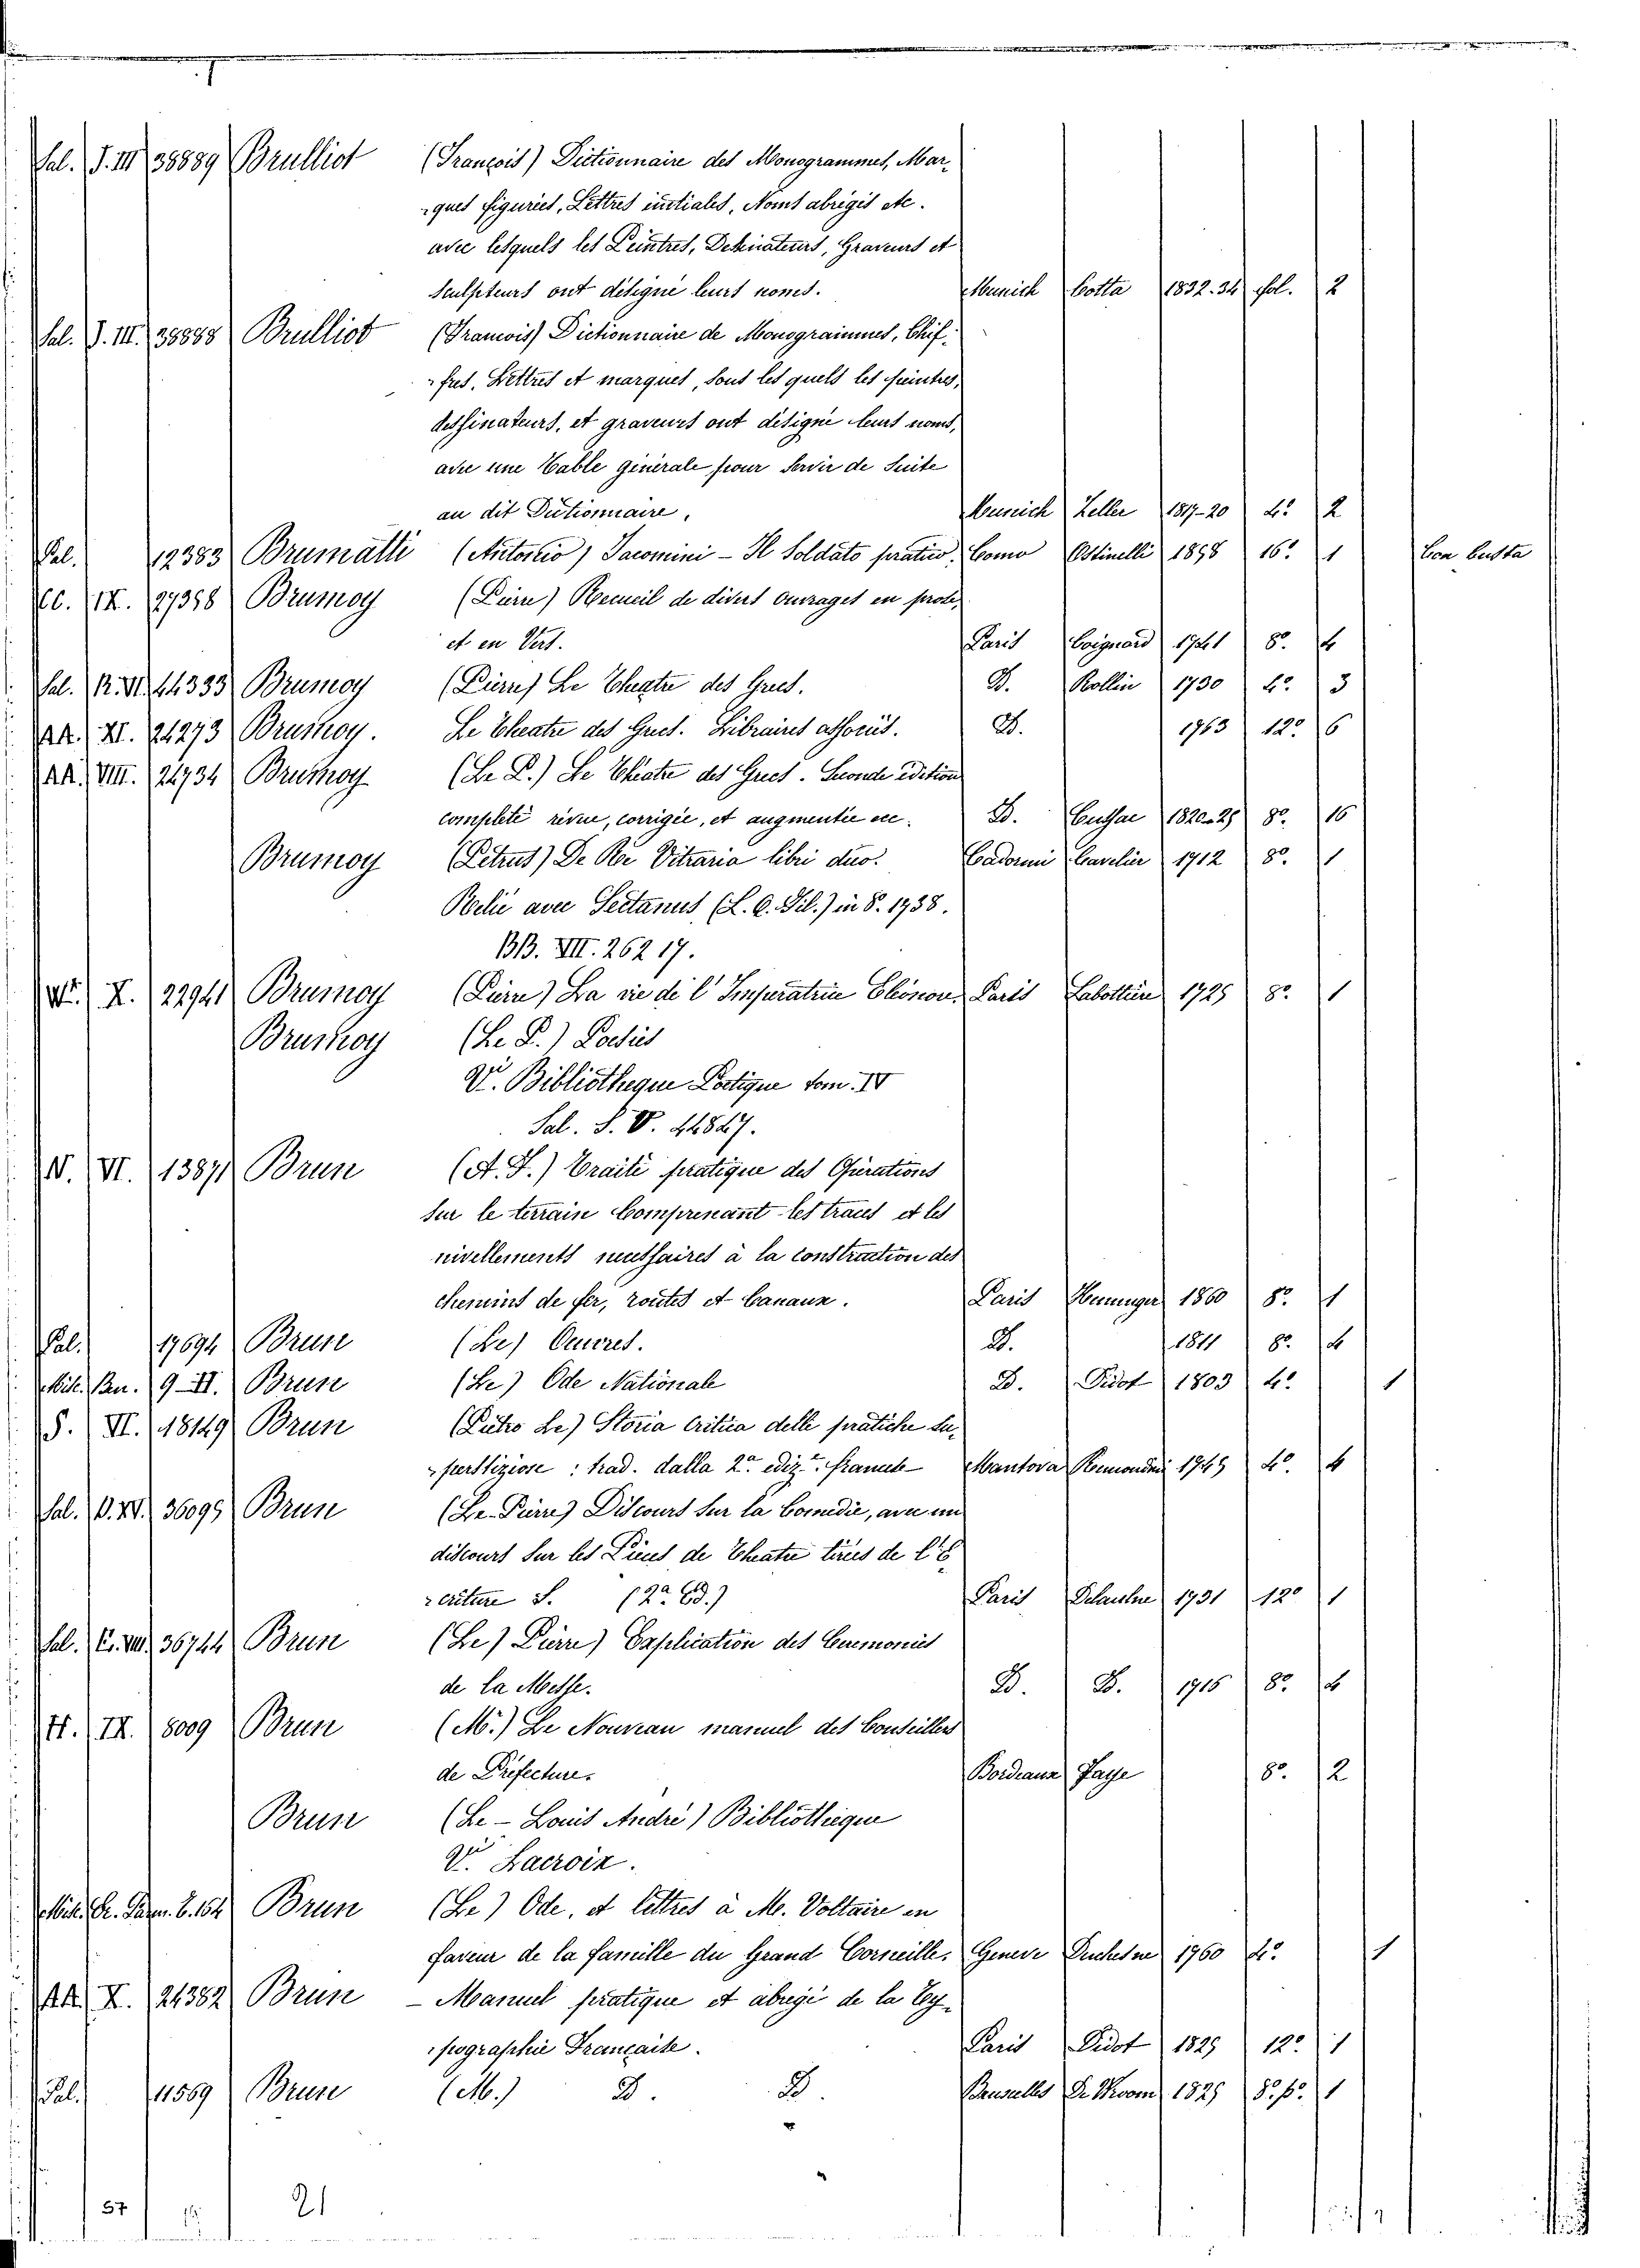 Sal. J. III 38889 Brulliot (François) Dictionnaire des Monogrammes, Mar-
-ques figurées, Lettres initiales, Noms abrégés etc.
avec lesquels les Peintres, Dessinateurs, Graveurs et
Sculpteurs ont désigné leurs noms. Munich Cotta 1832.34 fol. 2
Sal. J. III. 38888 Brulliot (François) Dictionnaire de Monogrammes, Chif-
-fres, Lettres et marques, sous les quels les peintres,
dessinateurs, et graveurs ont désigné leurs noms,
avec une Table générale pour servir de Suite
au dit Dictionnaire. Munich Zeller 1817-20 4.º 2
Pal. 12383 Brumatti (Antonio) Jacomini - Il Soldato pratico. Como Ostinelli 1858 16.º 1 Con busta
CC. IX. 27358 Brumoy (Pierre) Recueil de divers ouvrages en prose,
et en Vers. Paris Coignard 1741 8.º 4
Sal. R. VI. 44333 Brumoy (Pierre) Le Theatre des Grecs. D. Rollin 1730 4.º 3
AA. XI. 24273 Brumoy. Le Theatre des Grecs. Libraires associés. D. 1763 12.º 6
AA. VIII. 24734 Brumoy (Le P.) Le Theatre des Grecs. Seconde édition
complete revue, corrigée, et augmentée etc. D. Cussac 1820-25 8.º 16
Brumoy (Petrus) De Re Vitraria libri duo. Cadomi Cavelier 1712 8.º 1
Relié avec Sectanus (L. Q. Fil.) in 8. 1738.
BB. VII. 26217.
X. 22941 Brumoy (Pierre) La vie de l'Imperatrice Eléonore. Paris Labottiere 1725 8.º 1
Brumoy (Le P.) Poesies
V. Bibliotheque Poetique tom. IV
Sal. S. V. 44847.
N. VI. 13871 Brun (A. F.) Traité pratique des Opérations
sur le terrain Comprenant les tracés et les
nivellements necessaires à la construction des
chemins de fer, routes et Canaux. Paris 1860 8.º 1
Pal. 17694 Brun (Le) Oeuvres. D. 1811 8.º 4
Misc. Ben. 9-II. Brun (Le) Ode Nationale D. Didot 1803 4.º 1
S. VI. 18149 Brun (Pietro Le) Storia Critica delle pratiche su-
-perstiziose: trad. dalla 2.ª ediz.ne francese Mantova Remondini 1745 4.º 4
Sal. O. XV. 36095 Brun (Le Pierre) Discours sur la Comedie, avec un
discours sur les Pieces de Theatre tirées de l'E-
-criture S. (2.ª Ed.) Paris Delaulne 1731 12.º 1
Sal. E. VIII. 36744 Brun (Le) Pierre) Explication des Ceremonies
de la Messe. D. D. 1716 8.º 4
H. IX. 8009 Brun (M.) Le Nouveau manuel des Conseillers
de Préfecture. Bordeaux Faye 8.º 2
Brun (Le - Louis André) Bibliothèque
V. Lacroix.
Misc. Gr. Parm. C. 164 Brun (Le) Ode, et lettres à M. Voltaire en
faveur de la famille du Grand Corneille. Geneve Duchesne 1760 4.º 1
AA. X. 24382 Brun - Manuel pratique et abregé de la Ty-
-pographie Française. Paris Didot 1825 12.º 1
Pal. 11569 Brun (M.) D. D. Bruxelles De Vroom 1825 8.º p.º 1
57 21